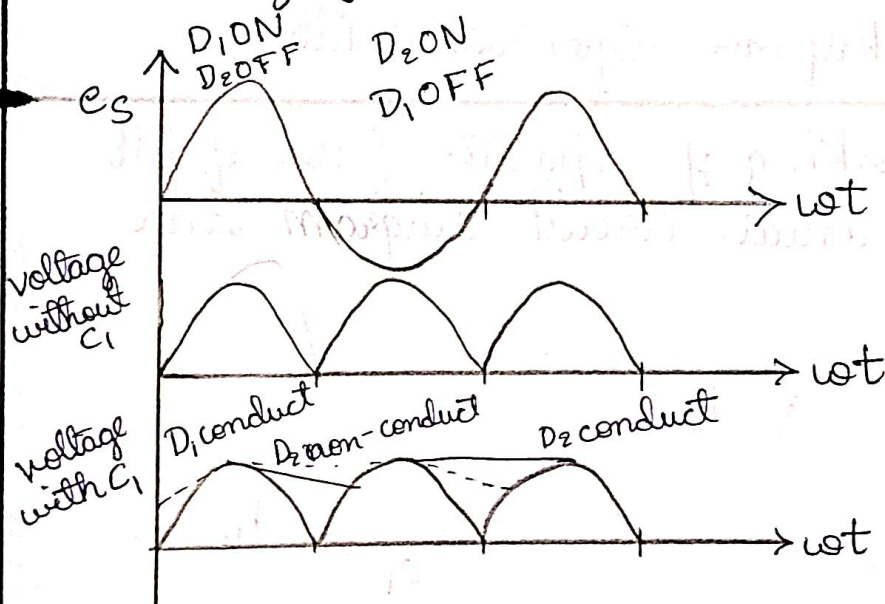 D₁ON
D₂OFF
D₂ON
D₁OFF
es
ωt
voltage
without
C₁
ωt
voltage
with C₁
D₁ conduct
D₂ non-conduct
D₂ conduct
ωt